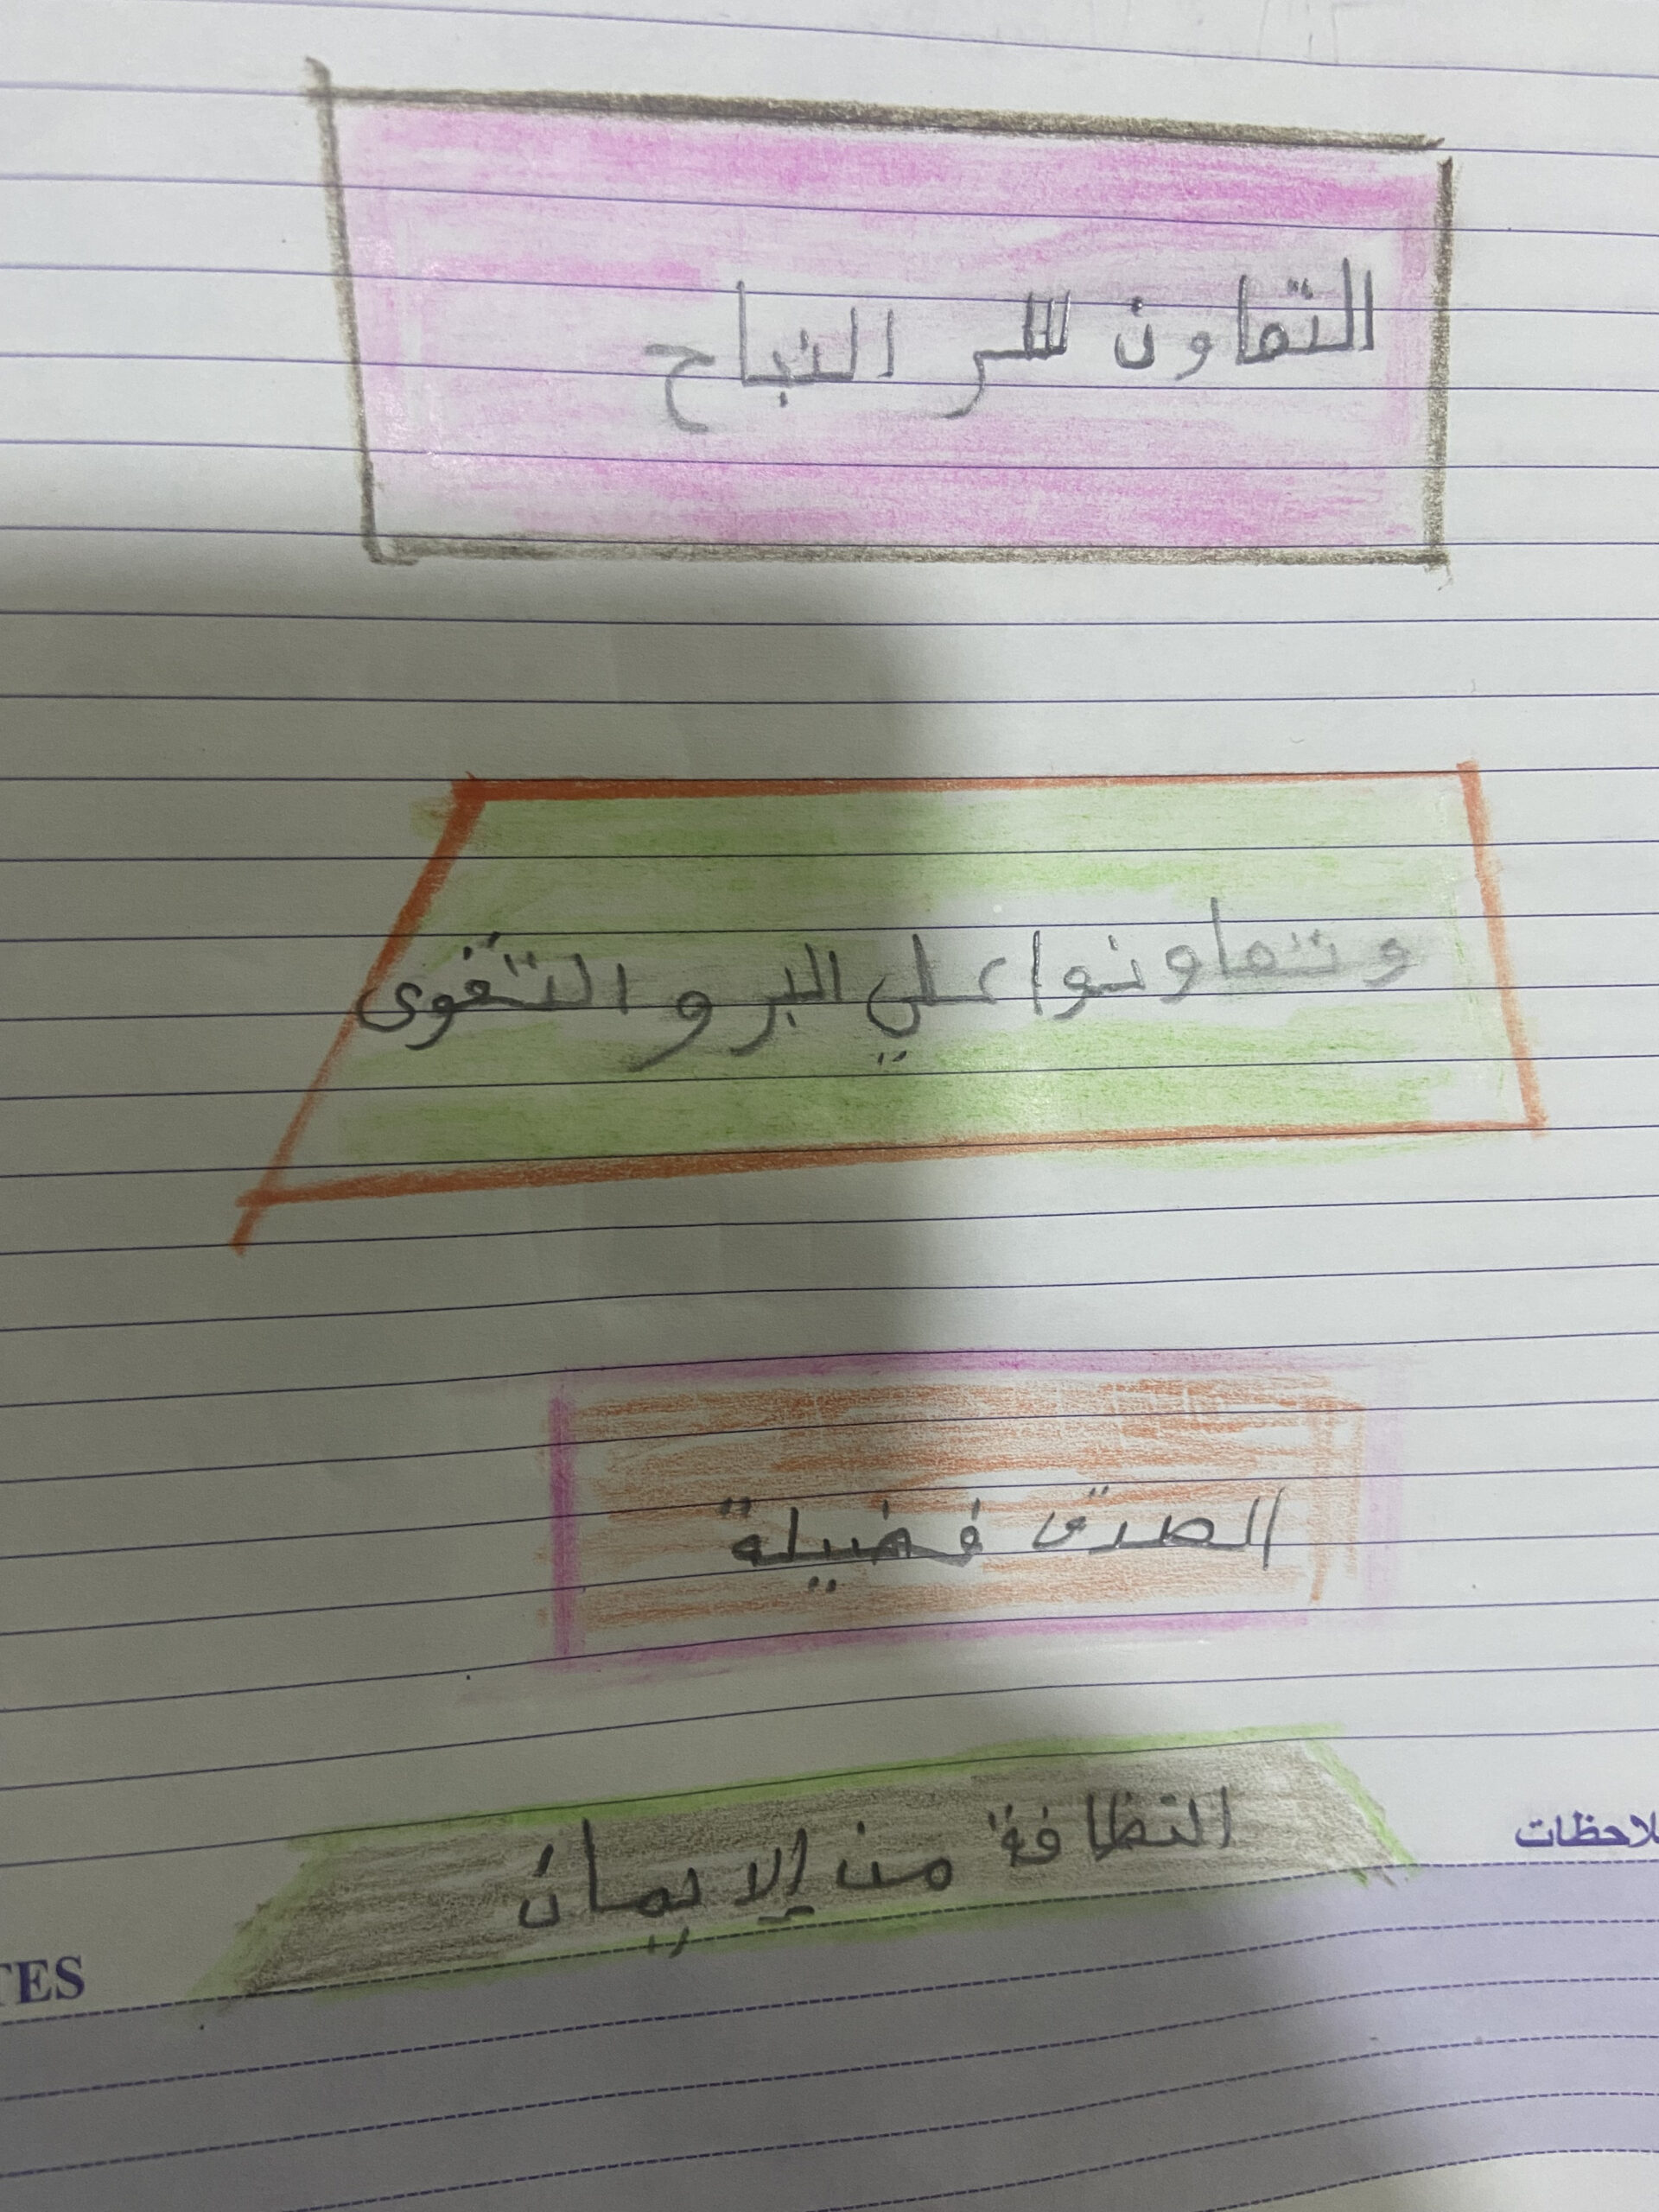 التعاون سر النجاح
وتعاونوا علي البر و التقوى
الصدق فضيلة
النظافة من الإيمان
لاحظات
TES